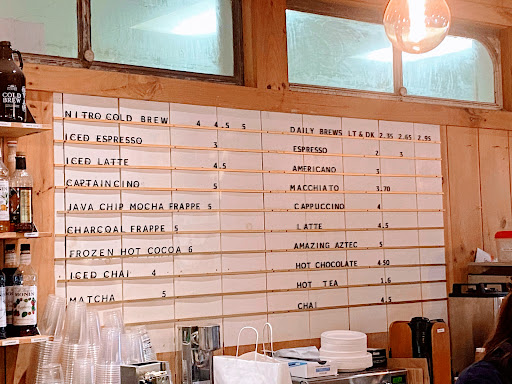 NITRO COLD BREW 4 4.5 5
ICED ESPRESSO 3
ICED LATTE 4.5
CAPTAINCINO 5
JAVA CHIP MOCHA FRAPPE 5
CHARCOAL FRAPPE 5
FROZEN HOT COCOA 6
ICED CHAI 4
MATCHA 5
DAILY BREWS LT & DK 2.35 2.65 2.95
ESPRESSO 2 3
AMERICANO 3
MACCHIATO 3.70
CAPPUCCINO 4
LATTE 4.5
AMAZING AZTEC 5
HOT CHOCOLATE 4.50
HOT TEA 1.6
CHAI 4.5
COLD
BREW